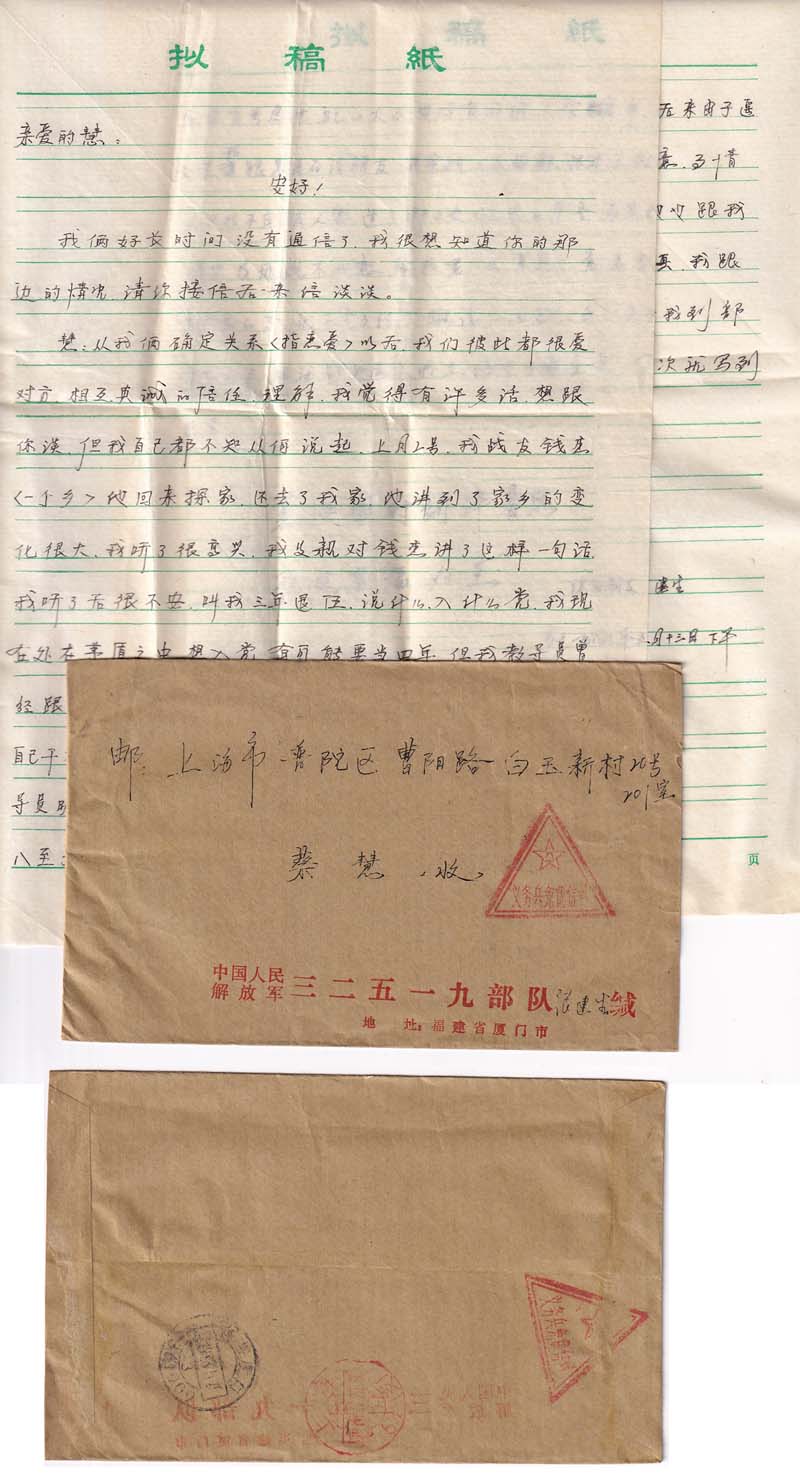 拟稿紙
亲爱的慧：
安好！
我俩好长时间没有通信了，我很想知道你的那
边的情况，请你接信后来信谈谈。
慧：从我俩确定关系〈指恋爱〉以后，我们彼此都很爱
对方，相互真诚的信任，理解，我觉得有许多话，想跟
你谈，但我自己都不知从何说起，上月2号，我战友钱杰
〈一个乡〉他回来探家，还去了我家，他讲到了家乡的变
化很大，我听了很高兴，我父亲对钱杰讲了这样一句话，
我听了后很不安，叫我三年退伍，说什么入什么党，我现
在处在矛盾之中，想入党，有可能要当四年，但我教导员曾
经跟
自己干
导员
八至
在来由于
跟我
真，我跟
我到部
次就写到
月十三日下午
页
邮：上海市普陀区曹阳路白玉新村26号
201室
蔡慧 收
义务兵免费信件
中国人民
解放军三二五一九部队张建生缄
地址：福建省厦门市
义务兵免费信件